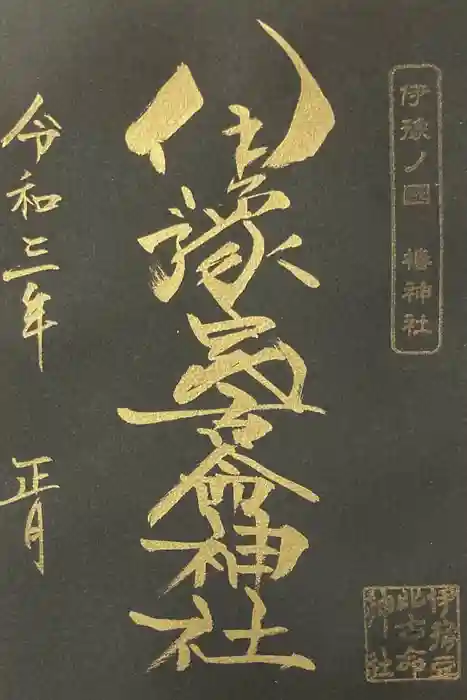 伊豫ノ國 椿神社
伊豫豆比古命神社
令和三年 正月
伊豫豆
比古命
神社